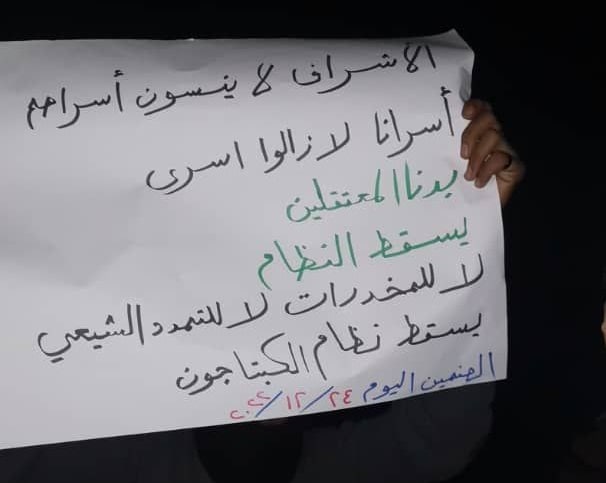 الأشراف لا ينسون أسراهم
أسرانا لازالوا اسرى
بدنا المعتقلين
يسقط النظام
لا للمخدرات لا للتمدد الشيعي
يسقط نظام الكبتاجون
الصنمين اليوم ٢٤/١٢/